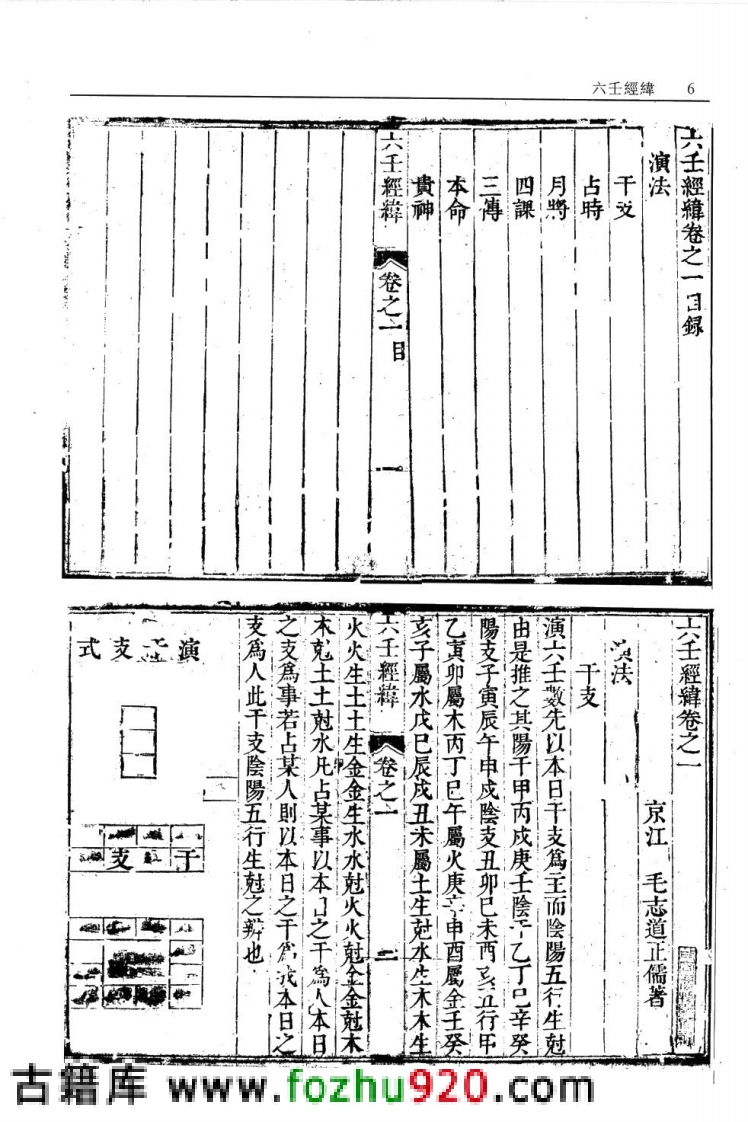 六壬經緯 6
六壬經緯卷之一目録
演法
干支
占時
月將
四課
三傳
本命
貴神
六壬經緯 卷之一目 一
六壬經緯卷之一
京江 毛志道正儒著
演法
干支
演六壬數先以本日干支爲主而陰陽五行生尅
由是推之其陽干甲丙戊庚壬陰干乙丁己辛癸
陽支子寅辰午申戌陰支丑卯巳未酉亥五行甲
乙寅卯屬木丙丁巳午屬火庚辛申酉屬金壬癸
亥子屬水戊己辰戌丑未屬土生尅水生木木生
六壬經緯 卷之一 二
火火生土土生金金生水水尅火火尅金金尅木
木尅土土尅水凡占某事以本日之干爲人本日
之支爲事若占某人則以本日之干爲我本日之
支爲人此干支陰陽五行生尅之辨也
演干支式
干
支
古籍库 www.fozhu920.com